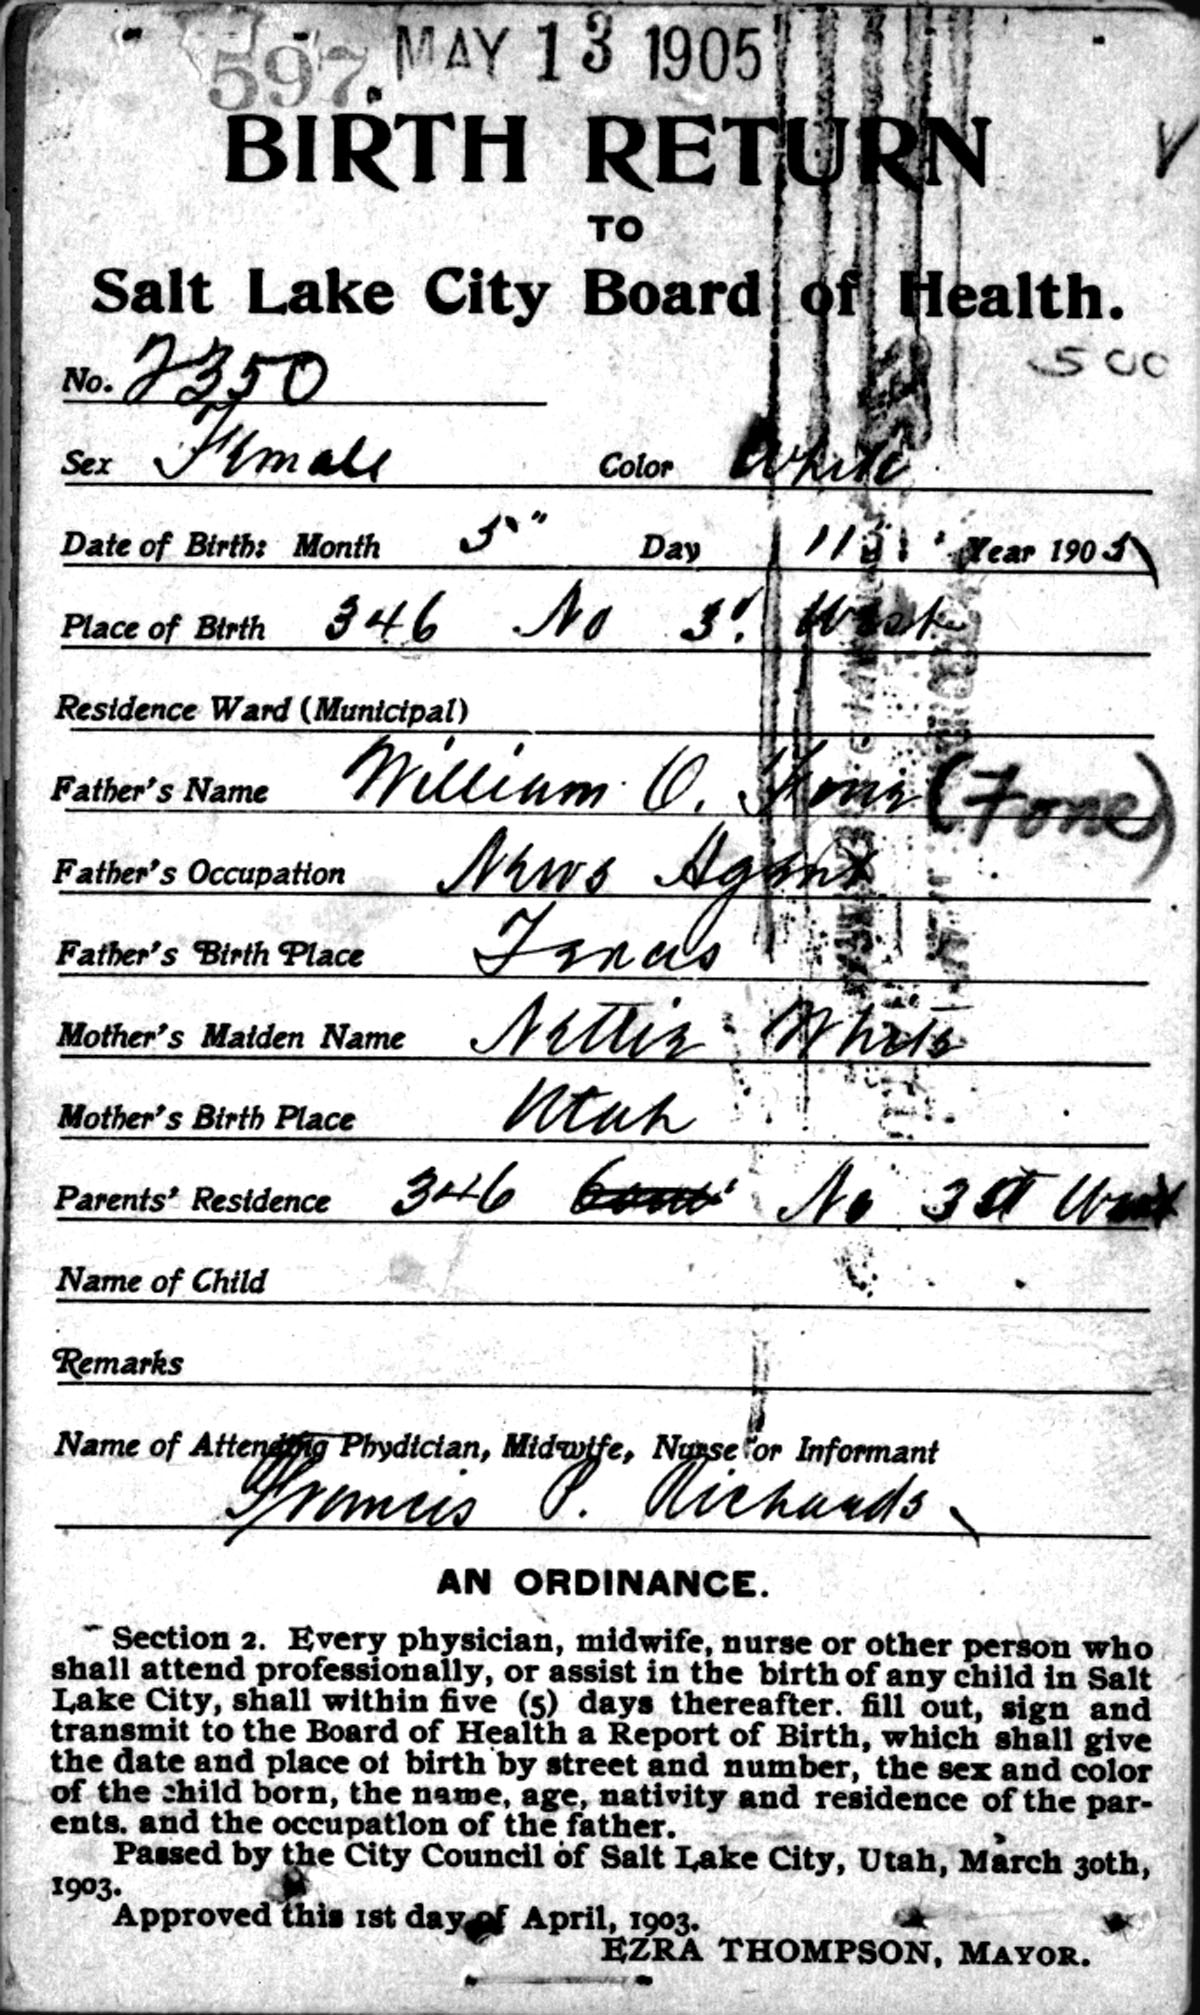 597. MAY 13 1905
BIRTH RETURN
TO
Salt Lake City Board of Health.
500
No. 2350
Sex Female Color White
Date of Birth: Month 5" Day 11 Year 1905
Place of Birth 346 No 3' West
Residence Ward (Municipal)
Father's Name William O. (Fone)
Father's Occupation News Agent
Father's Birth Place Texas
Mother's Maiden Name Nettie White
Mother's Birth Place Utah
Parents' Residence 346 No 3st West
Name of Child
Remarks
Name of Attending Phydician, Midwife, Nurse or Informant
Francis P. Richards
AN ORDINANCE.
Section 2. Every physician, midwife, nurse or other person who
shall attend professionally, or assist in the birth of any child in Salt
Lake City, shall within five (5) days thereafter. fill out, sign and
transmit to the Board of Health a Report of Birth, which shall give
the date and place of birth by street and number, the sex and color
of the child born, the name, age, nativity and residence of the par-
ents. and the occupation of the father.
Passed by the City Council of Salt Lake City, Utah, March 30th,
1903.
Approved this 1st day of April, 1903.
EZRA THOMPSON, MAYOR.